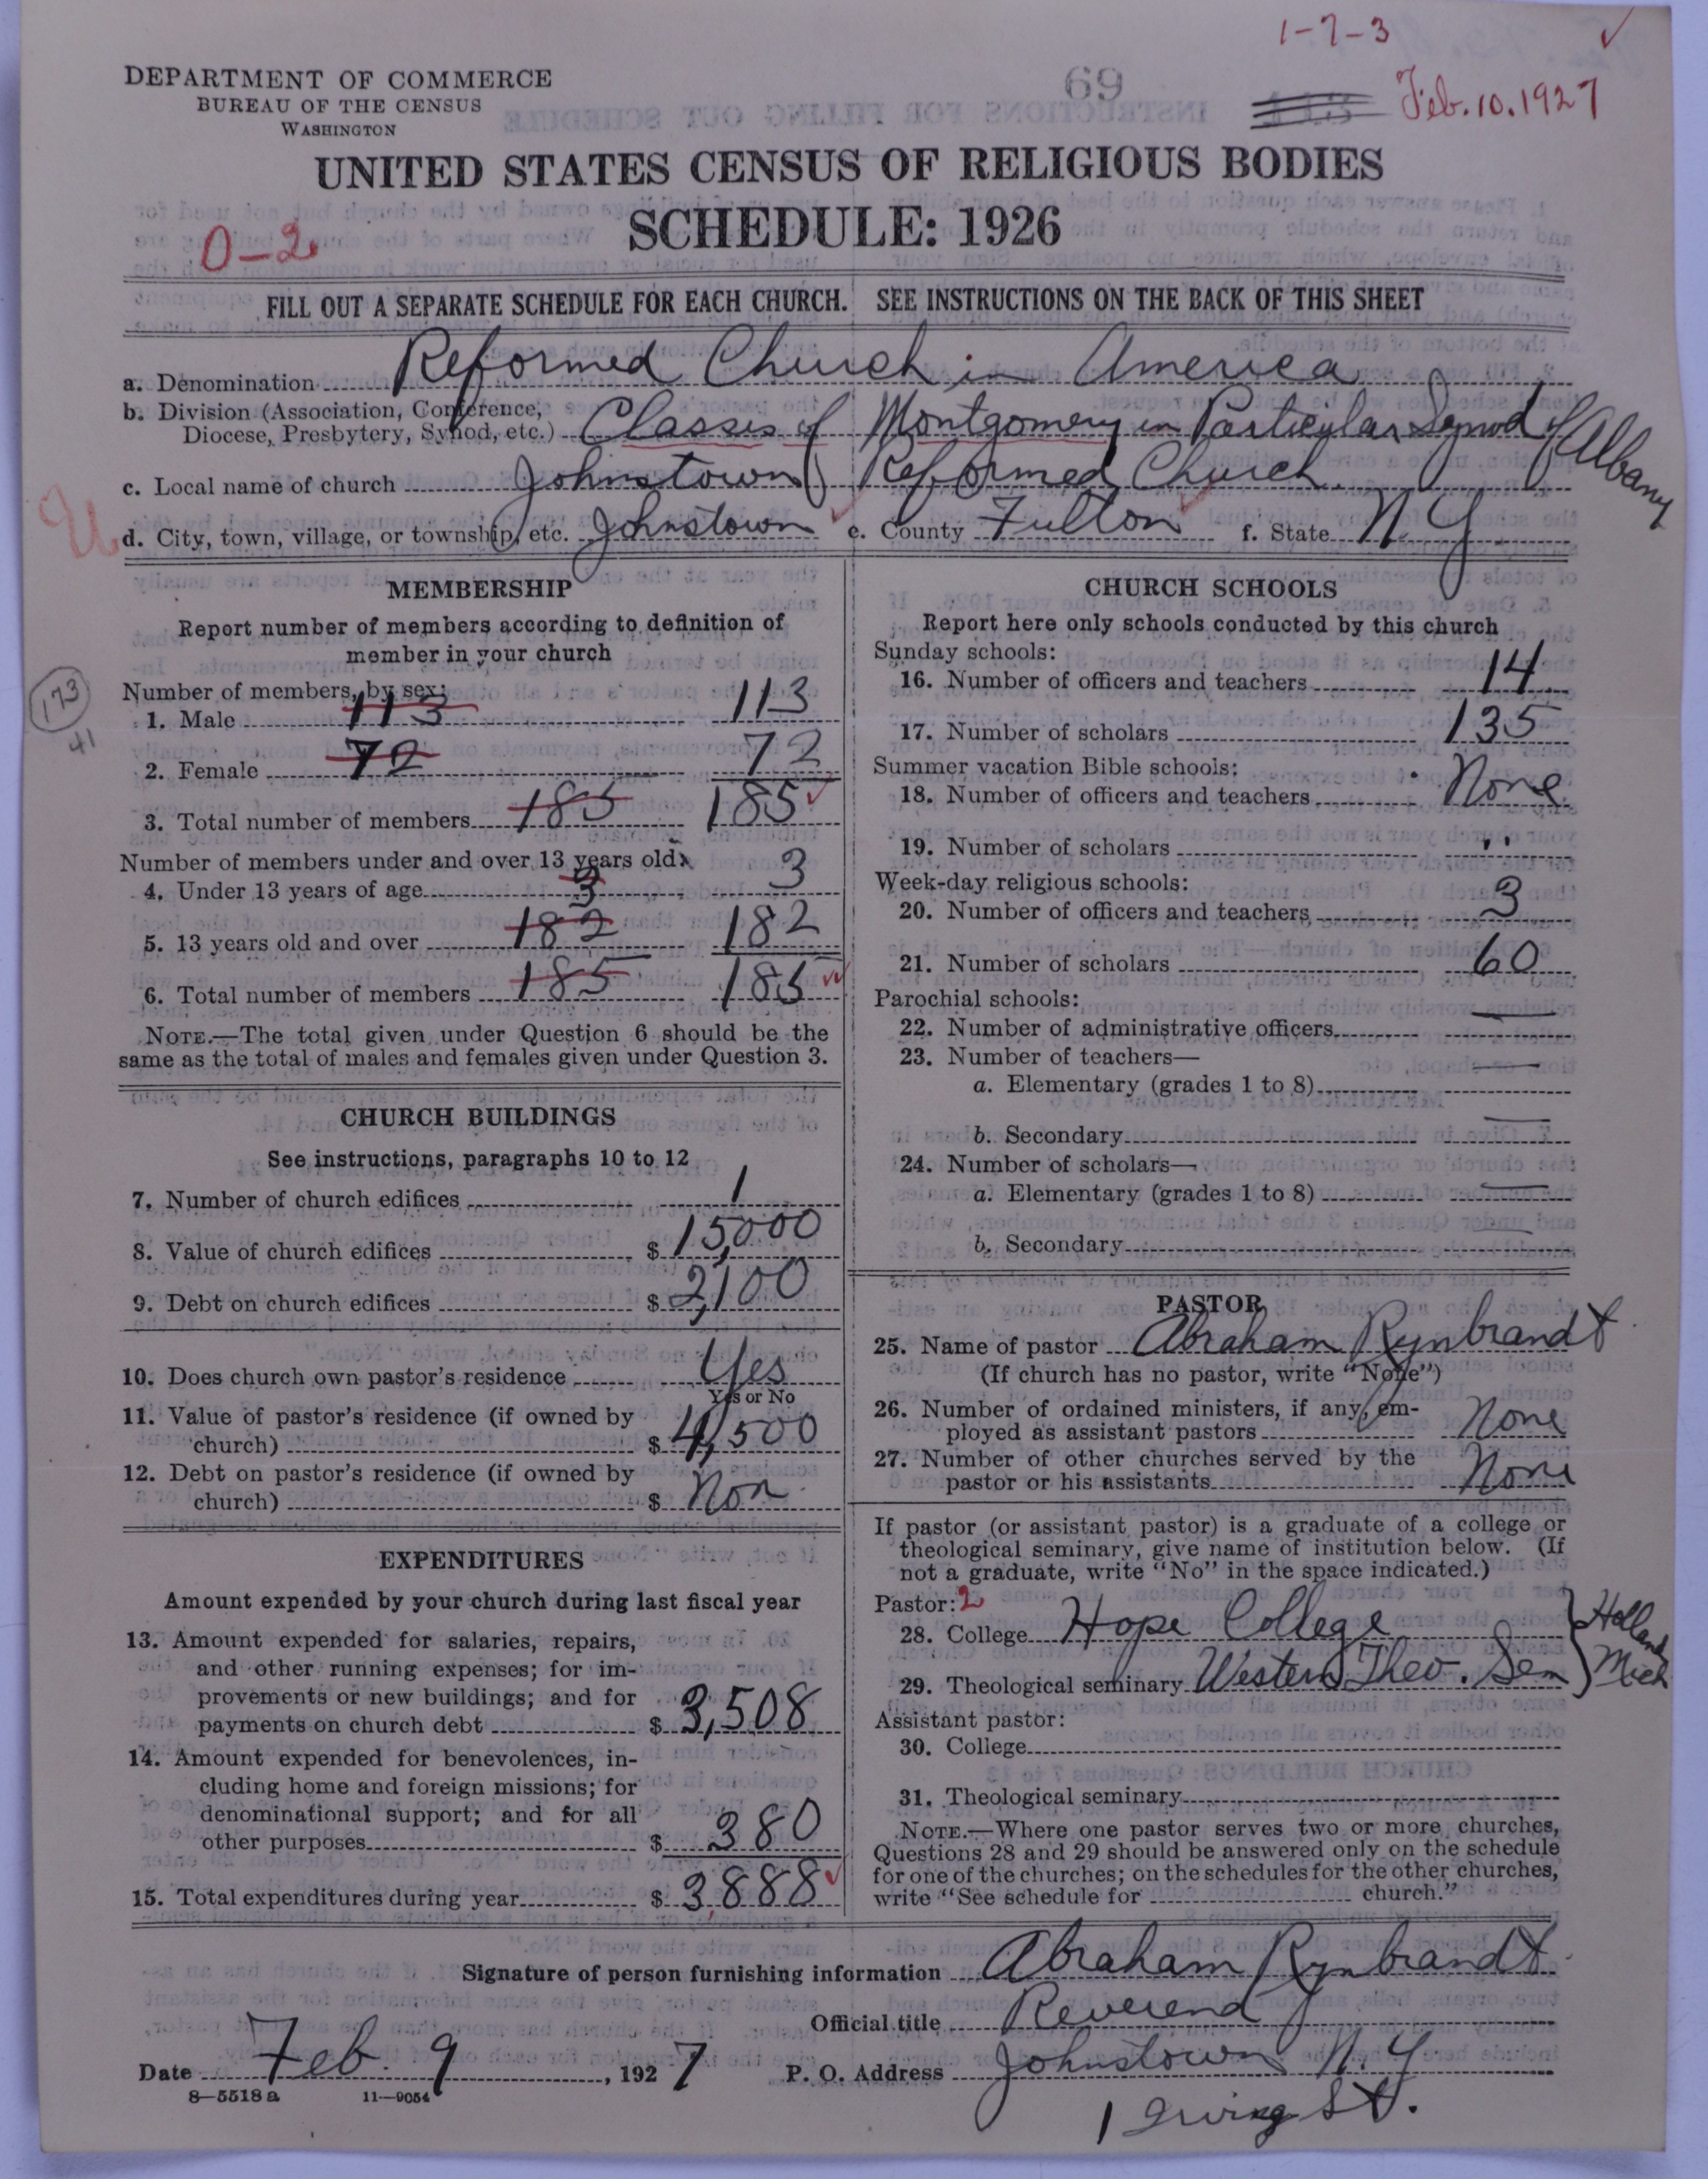 1-7-3
DEPARTMENT OF COMMERCE
BUREAU OF THE CENSUS
WASHINGTON
69
Feb. 10. 1927
UNITED STATES CENSUS OF RELIGIOUS BODIES
SCHEDULE: 1926
0-2
FILL OUT A SEPARATE SCHEDULE FOR EACH CHURCH. SEE INSTRUCTIONS ON THE BACK OF THIS SHEET
a. Denomination Reformed Church in America
b. Division (Association, Conference,
Diocese, Presbytery, Synod, etc.) Classis of Montgomery in Particular Synod of Albany
c. Local name of church Johnstown Reformed Church.
d. City, town, village, or township, etc. Johnstown e. County Fulton f. State N Y
MEMBERSHIP
Report number of members according to definition of
member in your church
173
41
Number of members, by sex:
1. Male 113 113
2. Female 72 72
3. Total number of members 185 185
Number of members under and over 13 years old:
4. Under 13 years of age 3 3
5. 13 years old and over 182 182
6. Total number of members 185 185
NOTE.—The total given under Question 6 should be the
same as the total of males and females given under Question 3.
CHURCH BUILDINGS
See instructions, paragraphs 10 to 12
7. Number of church edifices 1
8. Value of church edifices $ 15,000
9. Debt on church edifices $ 2,100
10. Does church own pastor's residence Yes
Yes or No
11. Value of pastor's residence (if owned by
church) $ 4,500
12. Debt on pastor's residence (if owned by
church) $ Non
EXPENDITURES
Amount expended by your church during last fiscal year
13. Amount expended for salaries, repairs,
and other running expenses; for im-
provements or new buildings; and for
payments on church debt $ 3,508
14. Amount expended for benevolences, in-
cluding home and foreign missions; for
denominational support; and for all
other purposes $ 380
15. Total expenditures during year $ 3,888
CHURCH SCHOOLS
Report here only schools conducted by this church
Sunday schools:
16. Number of officers and teachers 14
17. Number of scholars 135
Summer vacation Bible schools:
18. Number of officers and teachers None
19. Number of scholars "
Week-day religious schools:
20. Number of officers and teachers 3
21. Number of scholars 60
Parochial schools:
22. Number of administrative officers —
23. Number of teachers—
a. Elementary (grades 1 to 8) —
b. Secondary —
24. Number of scholars—
a. Elementary (grades 1 to 8) —
b. Secondary —
PASTOR
25. Name of pastor Abraham Rynbrandt
(If church has no pastor, write "None")
26. Number of ordained ministers, if any, em-
ployed as assistant pastors None
27. Number of other churches served by the
pastor or his assistants None
If pastor (or assistant pastor) is a graduate of a college or
theological seminary, give name of institution below. (If
not a graduate, write "No" in the space indicated.)
Pastor: 2
28. College Hope College
29. Theological seminary Western Theo. Sem
Holland
Mich
Assistant pastor:
30. College
31. Theological seminary
NOTE.—Where one pastor serves two or more churches,
Questions 28 and 29 should be answered only on the schedule
for one of the churches; on the schedules for the other churches,
write "See schedule for church."
Signature of person furnishing information Abraham Rynbrandt
Official title Reverend
Date Feb. 9, 1927 P. O. Address Johnstown N. Y.
8—5518a 11—9054
1 Irving St.